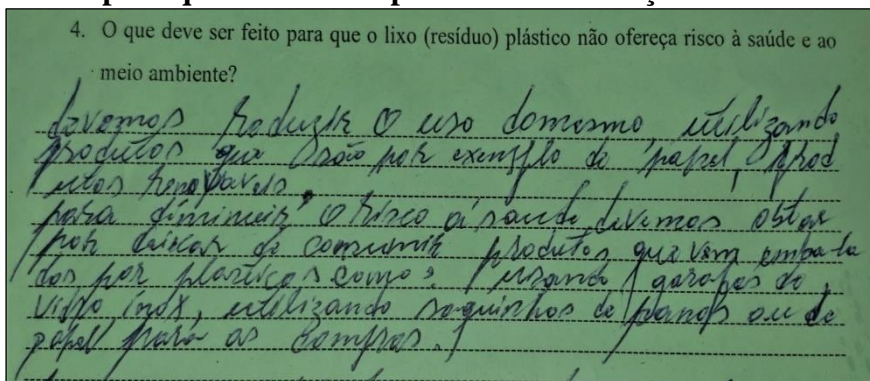 4. O que deve ser feito para que o lixo (resíduo) plástico não ofereça risco à saúde e ao
meio ambiente?
devemos reduzir o uso do mesmo, utilizando
produtos que são por exemplo de papel, prod
utos renováveis.
para diminuir o risco a saude devemos obtar
por deixar de consumir produtos que vem embala
dos por plasticos como: usando garafas de
vidro inox, utilizando saquinhos de panos ou de
papel para as compras.